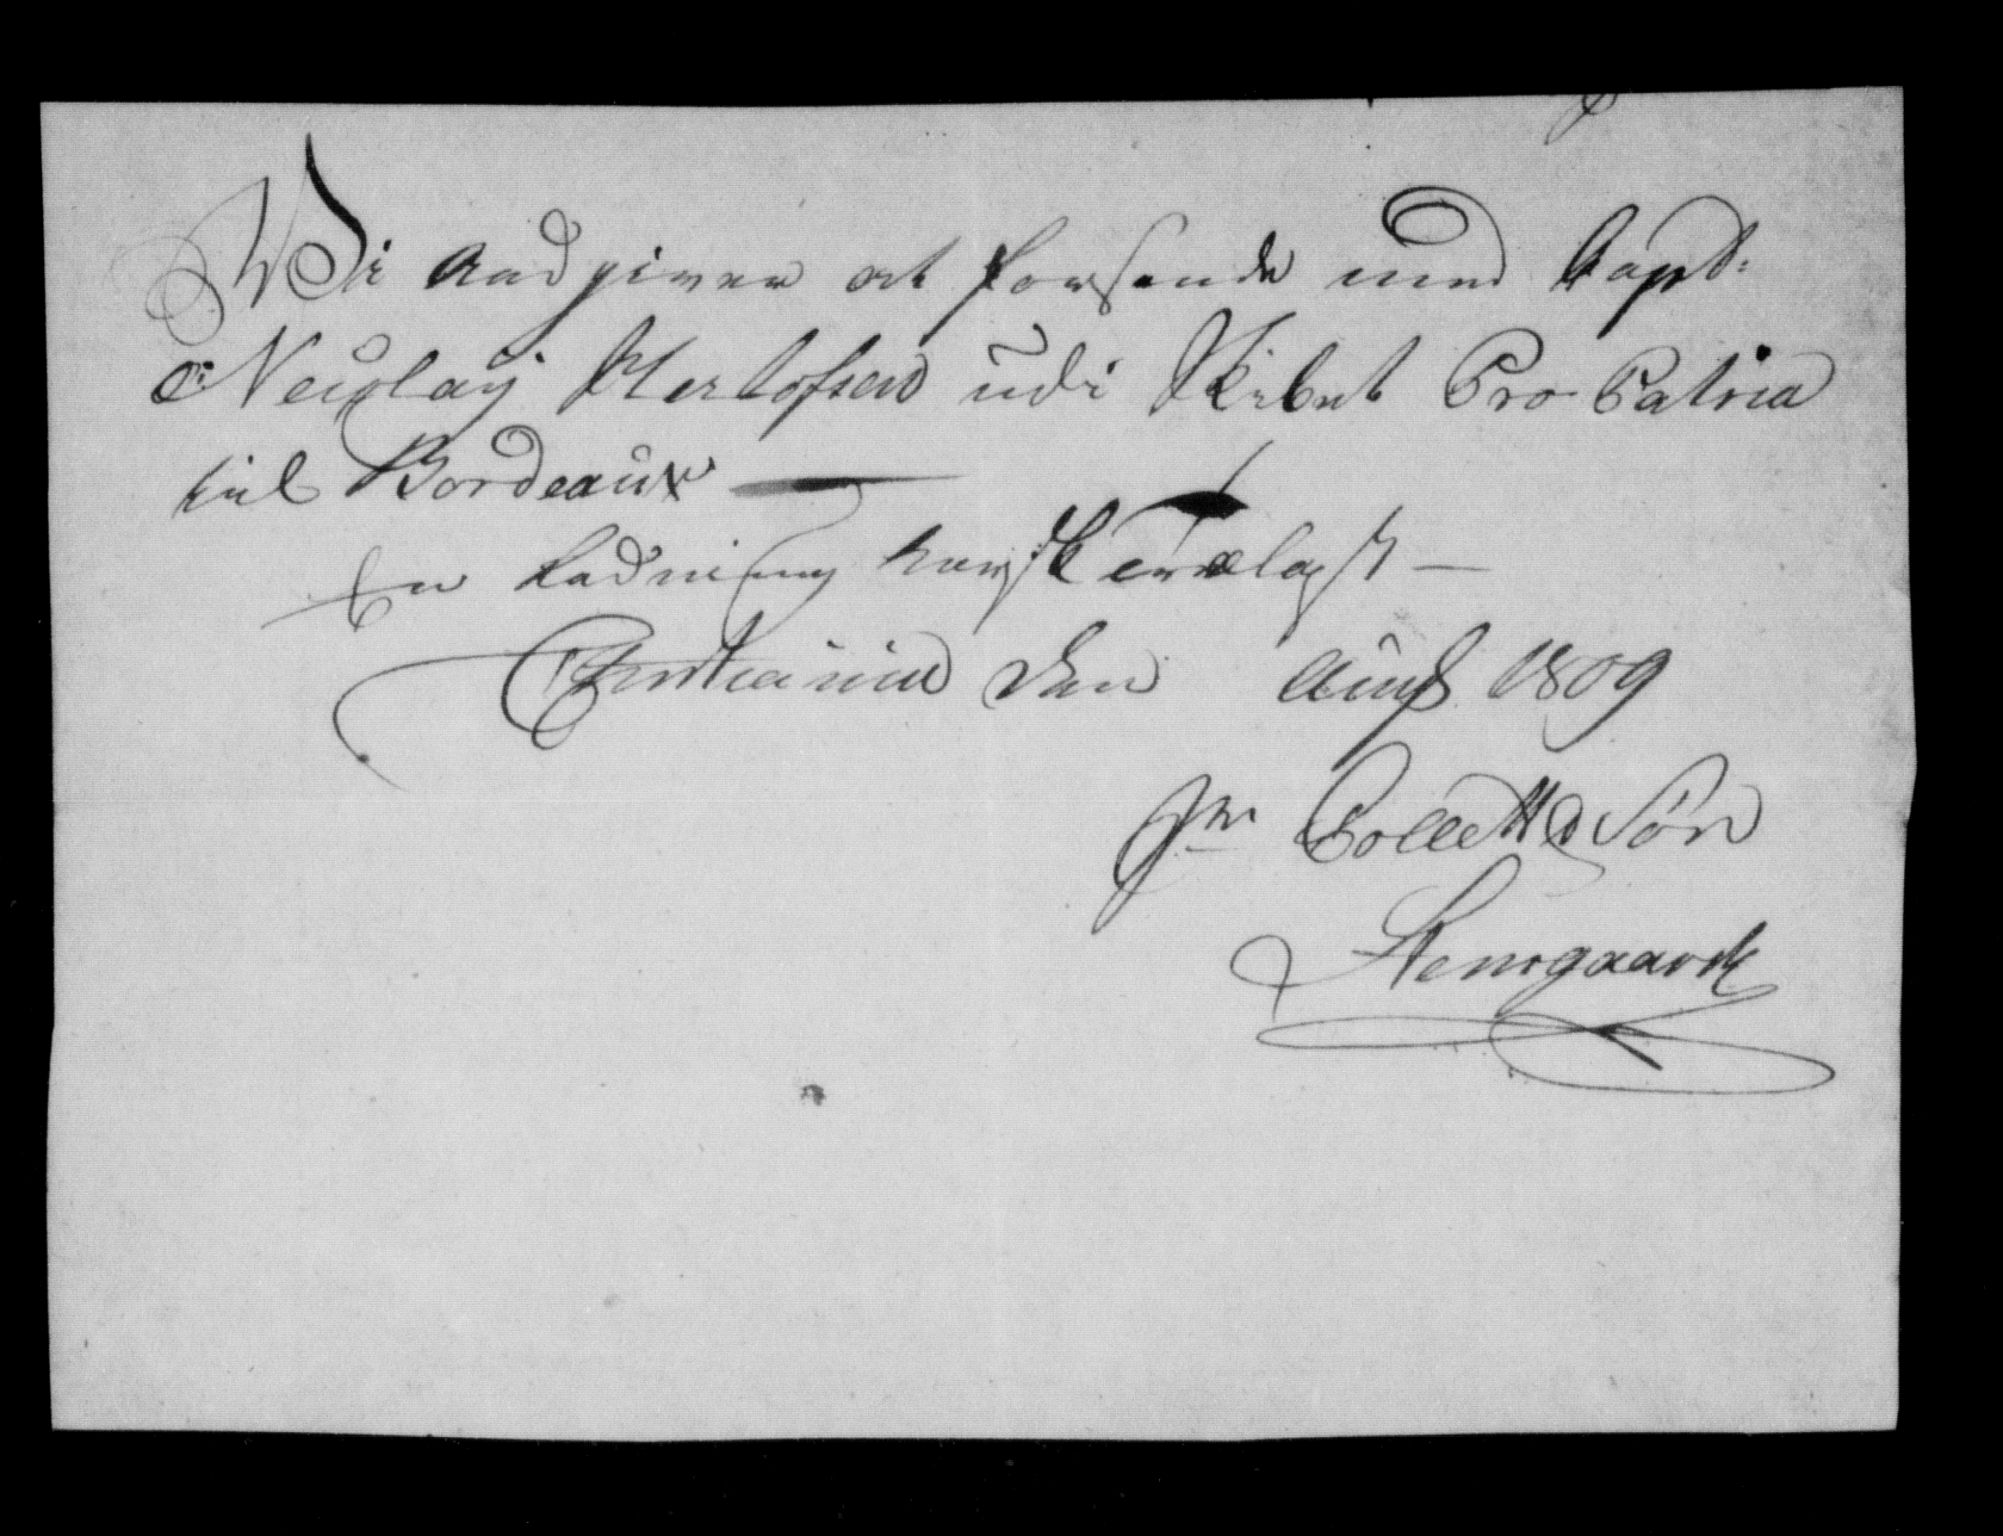 Wi Andgiver at forsende med Capt:
Nicolay Hertofsen udi Skibet Pro Patria
til Bordeaux
En Ladning norsk Trælast
Christiania den Aug 1809
Collett & Søn
Steensgaard